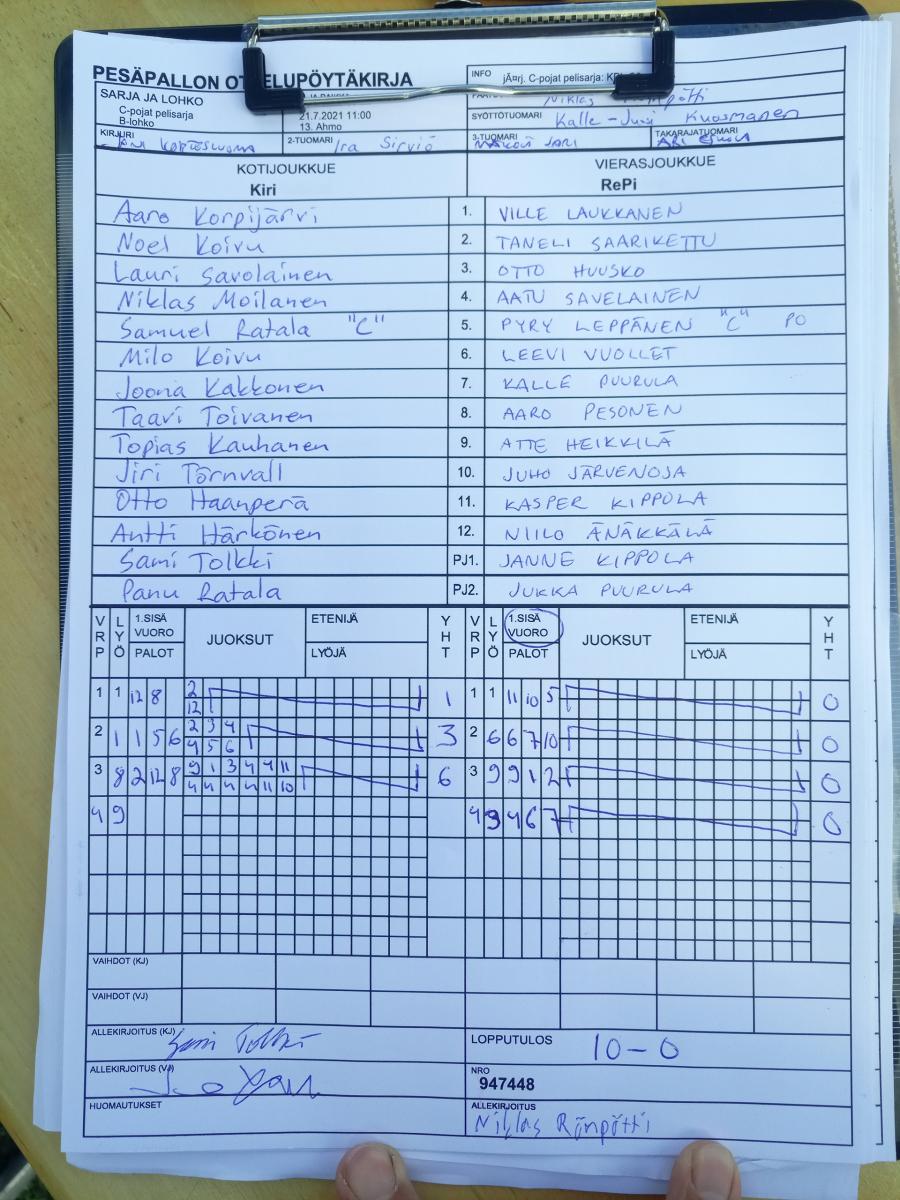 PESÄPALLON OTTELUPÖYTÄKIRJA
INFO järj. C-pojat pelisarja:
SARJA JA LOHKO
C-pojat pelisarja
B-lohko
21.7.2021 11:00
13. Ahmo
Niklas
SYÖTTÖTUOMARI Kalle-Jusi Kuosmanen
KIRJURI
2-TUOMARI Ira Sirviö
3-TUOMARI JARI
TAKARAJATUOMARI ARI
KOTIJOUKKUE VIERASJOUKKUE
Kiri RePi
Aaro Korpijärvi 1. VILLE LAUKKANEN
Noel Koivu 2. TANELI SAARIKETTU
Lauri Savolainen 3. OTTO HUUSKO
Niklas Moilanen 4. AATU SAVELAINEN
Samuel Ratala "C" 5. PYRY LEPPÄNEN "C" PO
Milo Koivu 6. LEEVI VUOLLET
Joona Kakkonen 7. KALLE PUURULA
Taavi Toivanen 8. AARO PESONEN
Topias Kauhanen 9. ATTE HEIKKILÄ
Jiri Törnvall 10. JUHO JÄRVENOJA
Otto Haanperä 11. KASPER KIPPOLA
Antti Härkönen 12. NIILO ÄNÄKKÄLÄ
Sami Tolkki PJ1. JANNE KIPPOLA
Panu Ratala PJ2. JUKKA PUURULA
VRP LYÖ 1.SISÄ VUORO PALOT JUOKSUT ETENIJÄ LYÖJÄ YHT VRP LYÖ 1.SISÄ VUORO PALOT JUOKSUT ETENIJÄ LYÖJÄ YHT
1 1 12 8 2 1 1 1 11 10 5 0
12
2 1 1 5 6 2 3 4 3 2 6 6 7 10 0
4 5 6
3 8 2 12 8 9 1 3 4 4 11 6 3 9 9 1 2 0
4 4 4 4 11 10
4 9 4 9 4 6 7 0
VAIHDOT (KJ)
VAIHDOT (VJ)
ALLEKIRJOITUS (KJ) Sami Tolkki
LOPPUTULOS 10-0
ALLEKIRJOITUS (VJ)
NRO
947448
HUOMAUTUKSET
ALLEKIRJOITUS
Niklas Römpötti